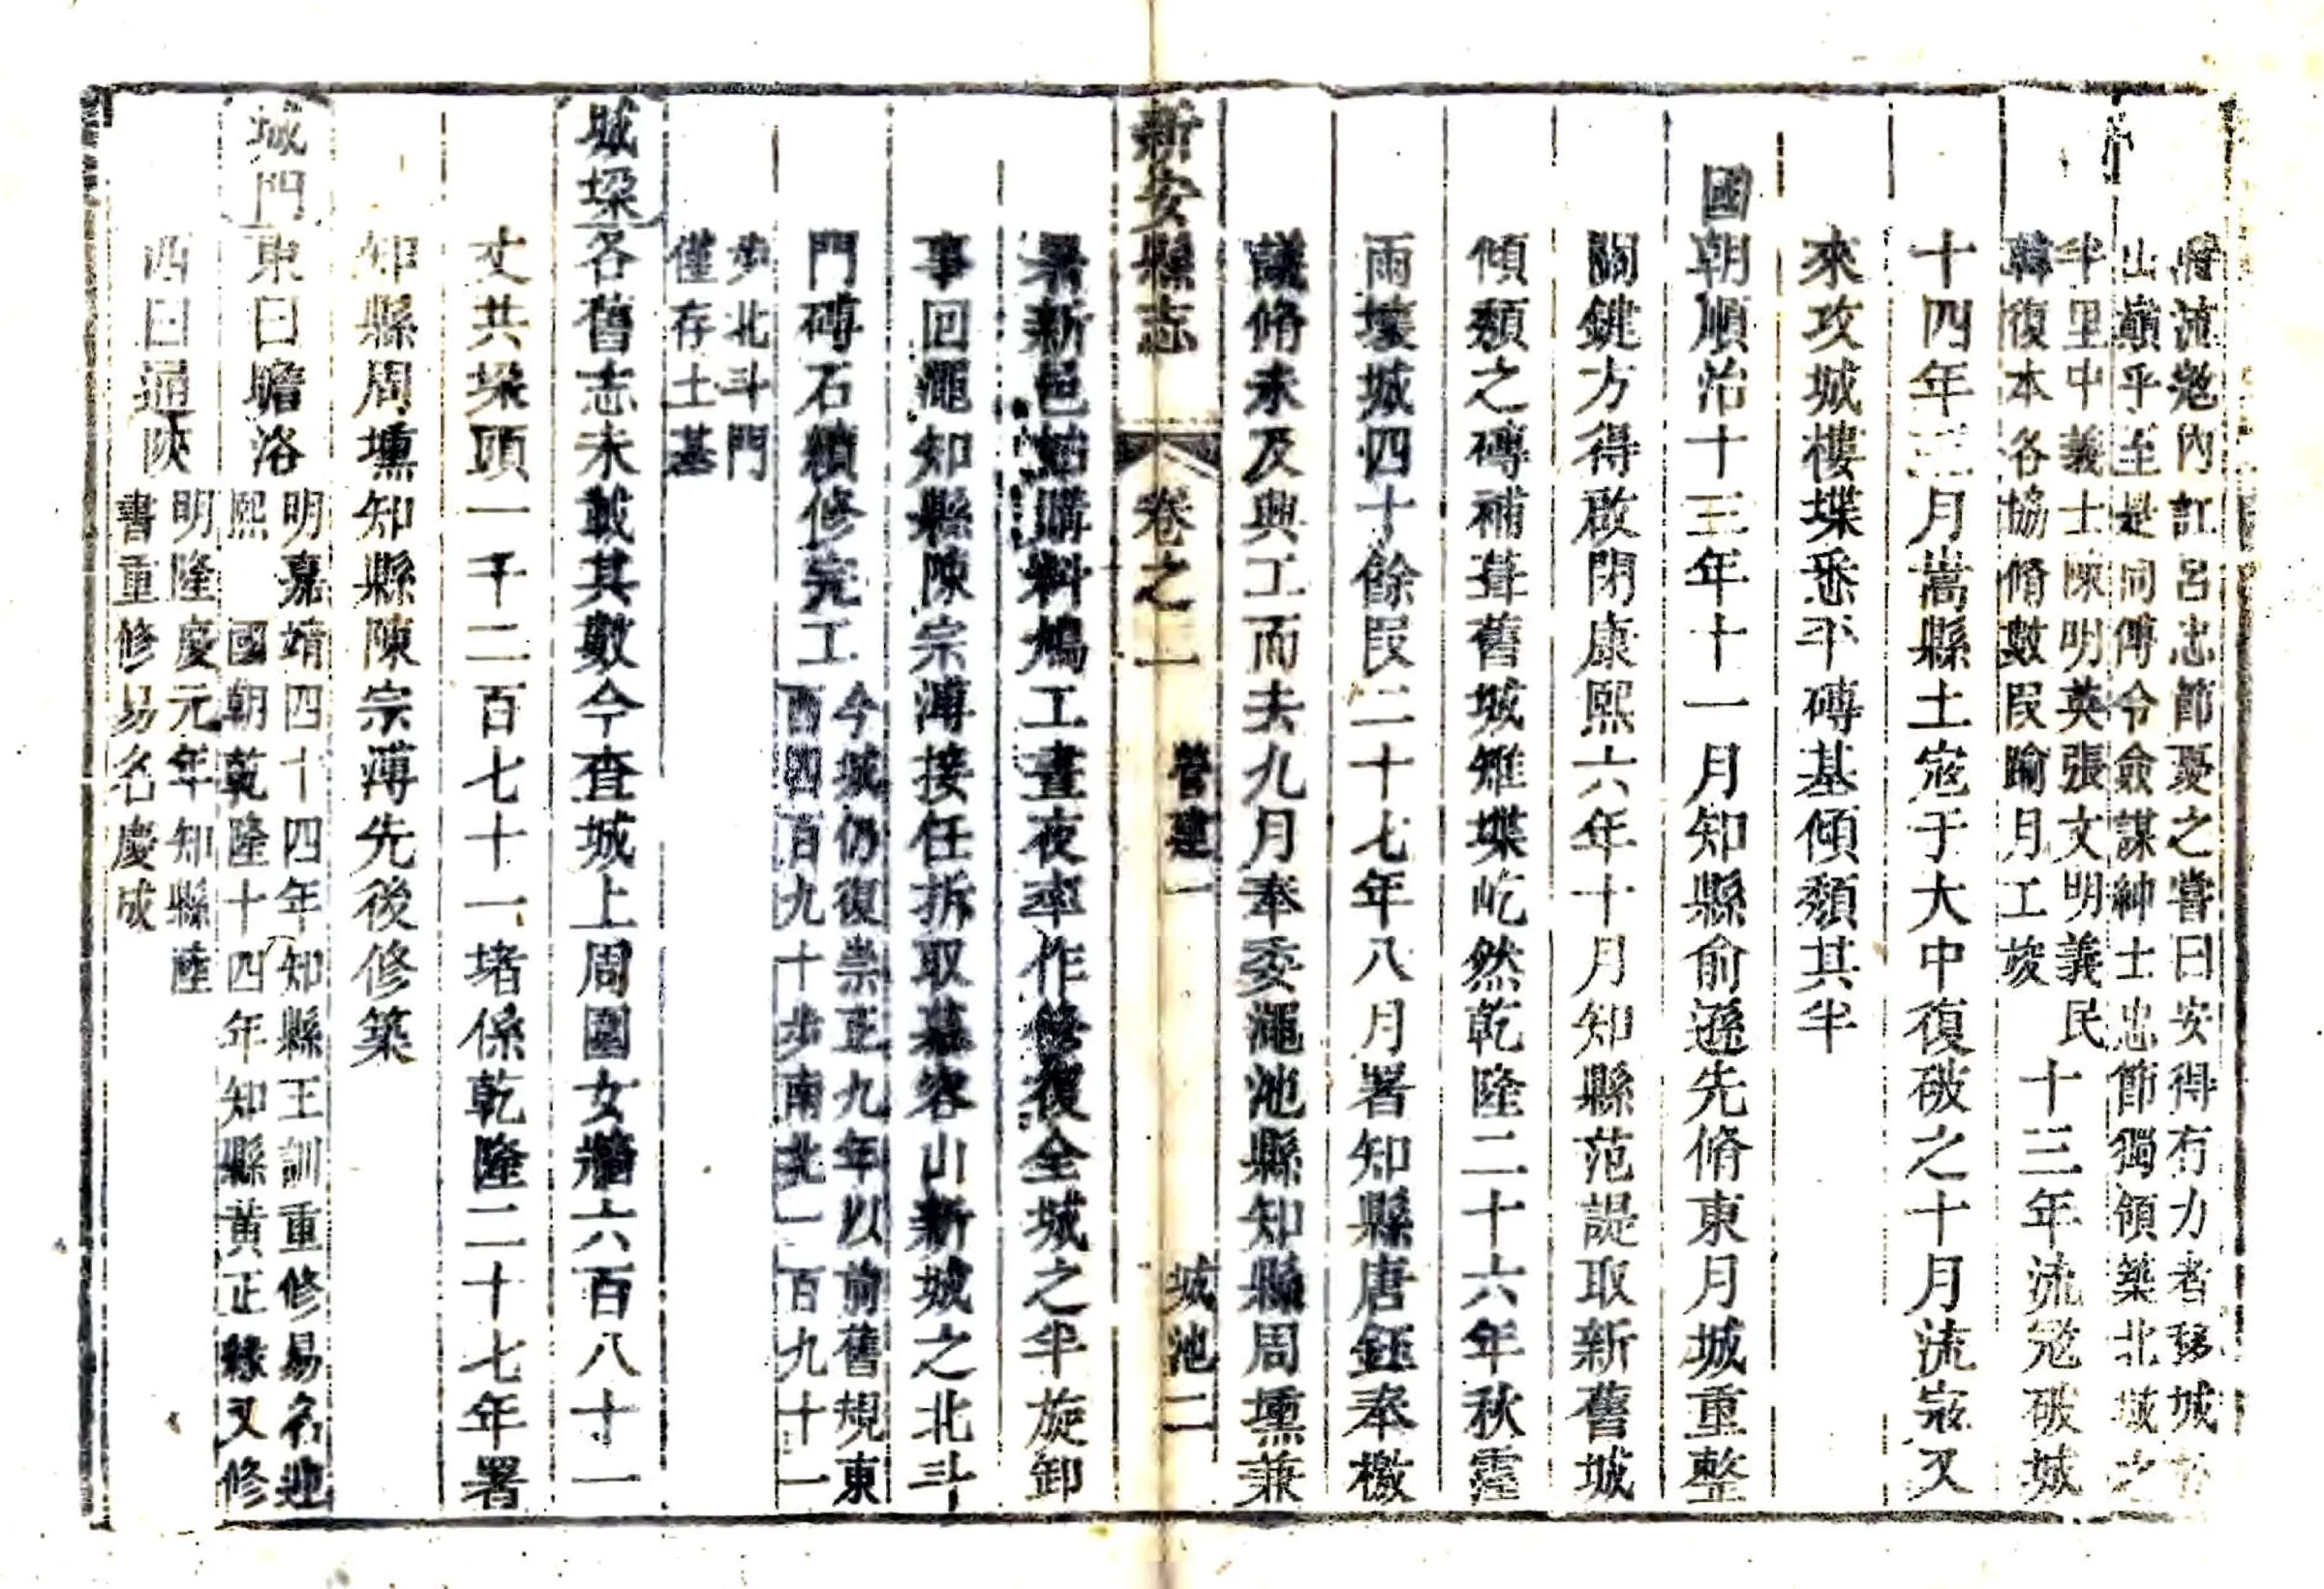 流宼內訌呂忠節憂之嘗曰安得有力者移城
山巔乎至是同傅令僉謀紳士忠節獨領築北城之
半里中義士陳明英張文明義民
韓復本各協脩數叚踰月工竣
十三年流宼破城
十四年三月嵩縣土宼于大中復破之十月流宼又
來攻城樓堞悉平磚基傾頽其半
國朝順治十三年十一月知縣俞遜先脩東月城重整
關鍵方得啟閉康熙六年十月知縣范諟取新舊城
傾頽之磚補葺舊城雉堞屹然乾隆二十六年秋霪
雨壞城四十餘叚二十七年八月署知縣唐鈺奉檄
議脩未及興工而去九月奉委澠池縣知縣周壎兼
新安縣志 卷之二 營建一 城池二
署新邑始購料鳩工晝夜率作修復全城之半旋卸
事回澠知縣陳宗溥接任拆取慕容山新城之北斗
門磚石續修完工
今城仍復崇正九年以前舊規東
西四百九十步南北一百九十一
步北斗門
僅存土基
城垜各舊志未載其數今查城上周圍女牆六百八十一
丈共垜頭一千二百七十一堵係乾隆二十七年署
知縣周壎知縣陳宗溥先後修築
城門東曰瞻洛
明嘉靖四十四年知縣王訓重修易名迎
熙 國朝乾隆十四年知縣黃正緣又修
西曰通陝
明隆慶元年知縣陸
書重修易名慶成